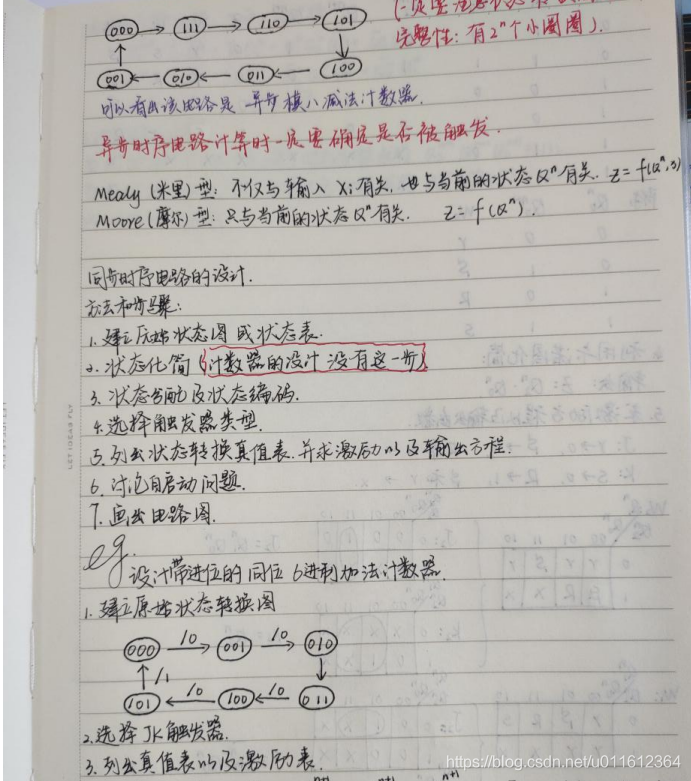 完整性: 有2ⁿ个小圈圈).
000 → 111 → 110 → 101
001 ← 010 ← 011 ← 100
可以看出该电路是 异步模八减法计数器.
异步时序电路计算时一定要确定是否被触发.
Mealy (米里) 型: 不仅与输入 Xi 有关, 也与当前的状态 Qⁿ 有关.
Moore (摩尔) 型: 只与当前的状态 Qⁿ 有关. Z = f(Qⁿ).
同步时序电路的设计.
方法和步骤:
1. 建立原始状态图 或 状态表.
2. 状态化简 (计数器的设计 没有这一步)
3. 状态分配及状态编码.
4. 选择触发器类型.
5. 列出状态转换真值表. 并求激励以及输出方程.
6. 讨论自启动问题.
7. 画出电路图.
eg.
设计带进位的 同位 6进制加法计数器.
1. 建立原始状态转换图
000 /0→ 001 /0→ 010
/1
101 ←/0 100 ←/0 011
2. 选择 JK 触发器.
3. 列出真值表以及激励表.
LET IDEAS FLY
https://blog.csdn.net/u011612364